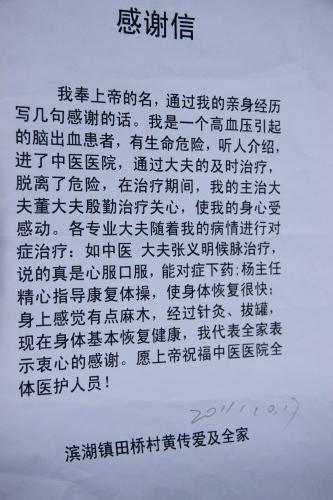 感谢信
我奉上帝的名，通过我的亲身经历
写几句感谢的话。我是一个高血压引起
的脑出血患者，有生命危险，听人介绍，
进了中医医院，通过大夫的及时治疗，
脱离了危险，在治疗期间，我的主治大
夫董大夫殷勤治疗关心，使我的身心受
感动。各专业大夫随着我的病情进行对
症治疗：如中医 大夫张义明候脉治疗，
说的真是心服口服，能对症下药；杨主任
精心指导康复体操，使身体恢复很快；
身上感觉有点麻木，经过针灸、拔罐，
现在身体基本恢复健康，我代表全家表
示衷心的感谢。愿上帝祝福中医医院全
体医护人员！
2011.10.17
滨湖镇田桥村黄传爱及全家